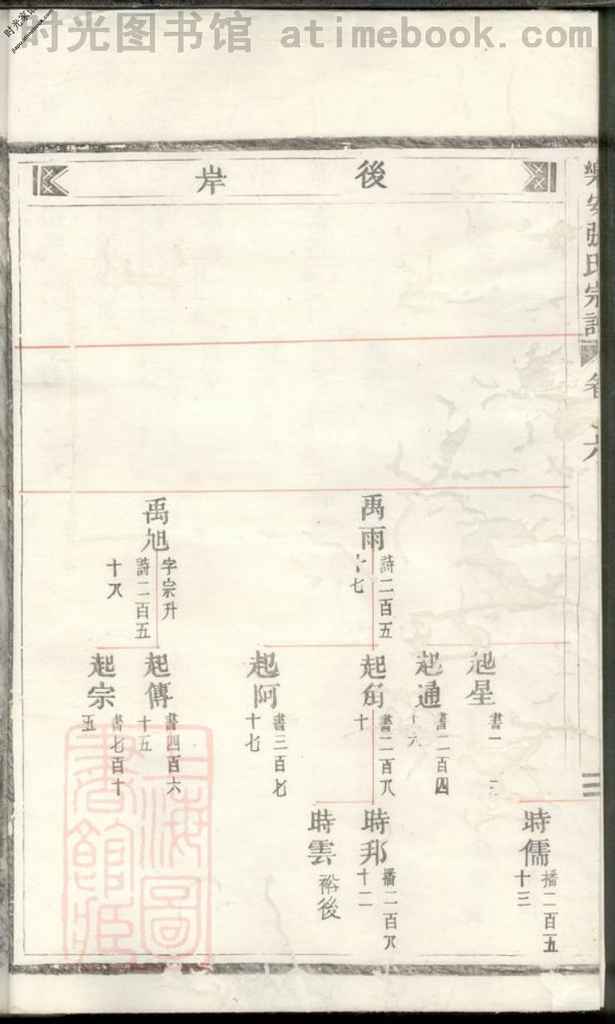 时光图书馆 atimebook.com
樂安張氏宗譜
卷六
後岸
禹雨
詩二百五
十七
禹旭
字宗升
詩二百五
十八
起星
起通
書二百四
起角
書二百八
十
起阿
書三百七
十七
起傳
書四百六
十五
起宗
書七百十
五
時儒
播二百五
十三
時邦
播二百八
十二
時雲
裕後
上海圖
書館藏